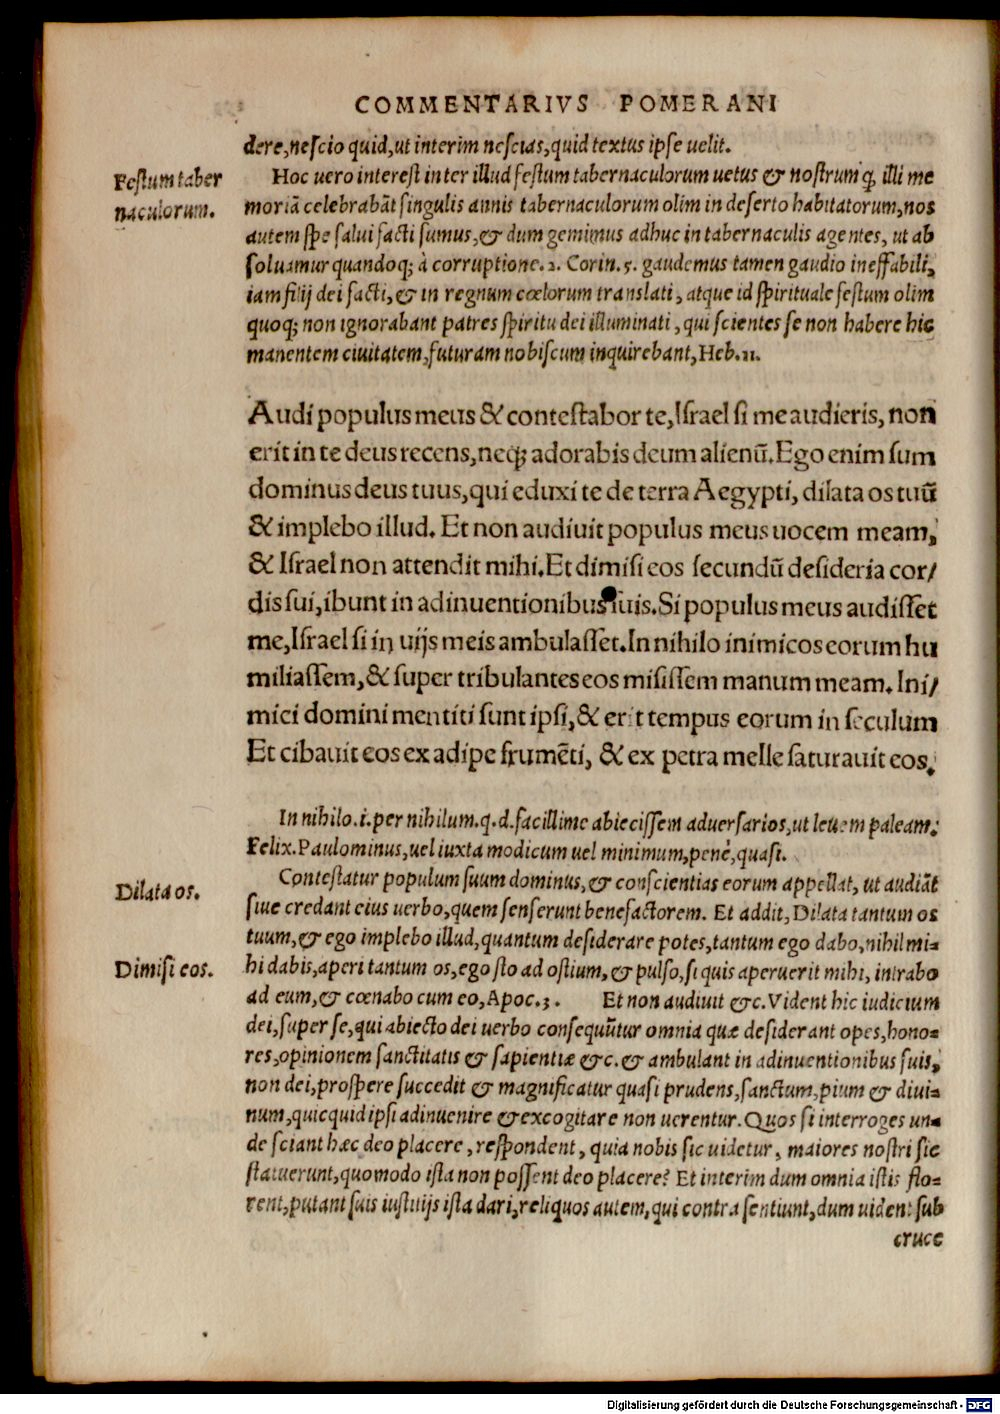 COMMENTARIVS POMERANI
dere, nescio quid, ut interim nescias, quid textus ipse uelit.
Festum taber
naculorum.
Hoc uero interest inter illud festum tabernaculorum uetus & nostrum q̃ illi me
moriā celebrabāt singulis annis tabernaculorum olim in deserto habitatorum, nos
autem spe salui facti sumus, & dum gemimus adhuc in tabernaculis agentes, ut ab
soluamur quandoq; à corruptione. 2. Corin. 5. gaudemus tamen gaudio ineffabili,
iam filij dei facti, & in regnum cœlorum translati, atque id spirituale festum olim
quoq; non ignorabant patres spiritu dei illuminati, qui scientes se non habere hic
manentem ciuitatem, futuram nobiscum inquirebant, Heb. 11.
Audi populus meus & contestabor te, Israel si me audieris, non
erit in te deus recens, neq; adorabis deum alienū. Ego enim sum
dominus deus tuus, qui eduxi te de terra Aegypti, dilata os tuū
& implebo illud. Et non audiuit populus meus uocem meam,
& Israel non attendit mihi. Et dimisi eos secundū desideria cor/
dis sui, ibunt in adinuentionibus suis. Si populus meus audisset
me, Israel si in uijs meis ambulasset. In nihilo inimicos eorum hu
miliassem, & super tribulantes eos misissem manum meam. Ini/
mici domini mentiti sunt ipsi, & erit tempus eorum in seculum
Et cibauit eos ex adipe frumēti, & ex petra melle saturauit eos.
In nihilo .i. per nihilum. q. d. facillime abiecissem aduersarios, ut leuem paleam.
Felix. Paulominus, uel iuxta modicum uel minimum, penè, quasi.
Dilata os.
Contestatur populum suum dominus, & conscientias eorum appellat, ut audiāt
siue credant eius uerbo, quem senserunt benefactorem. Et addit, Dilata tantum os
tuum, & ego implebo illud, quantum desiderare potes, tantum ego dabo, nihil mi-
Dimisi eos.
hi dabis, aperi tantum os, ego sto ad ostium, & pulso, si quis aperuerit mihi, intrabo
ad eum, & cœnabo cum eo, Apoc. 3. Et non audiuit &c. Vident hic iudicium
dei, super se, qui abiecto dei uerbo consequūtur omnia quæ desiderant opes, hono-
res, opinionem sanctitatis & sapientiæ &c. & ambulant in adinuentionibus suis,
non dei, prospere succedit & magnificatur quasi prudens, sanctum, pium & diui-
num, quicquid ipsi adinuenire & excogitare non uerentur. Quos si interroges un-
de sciant hæc deo placere, respondent, quia nobis sic uidetur, maiores nostri sic
statuerunt, quomodo ista non possent deo placere? Et interim dum omnia istis flo-
rent, putant suis iustitijs ista dari, reliquos autem, qui contra sentiunt, dum uident sub
cruce
Digitalisierung gefördert durch die Deutsche Forschungsgemeinschaft - DFG